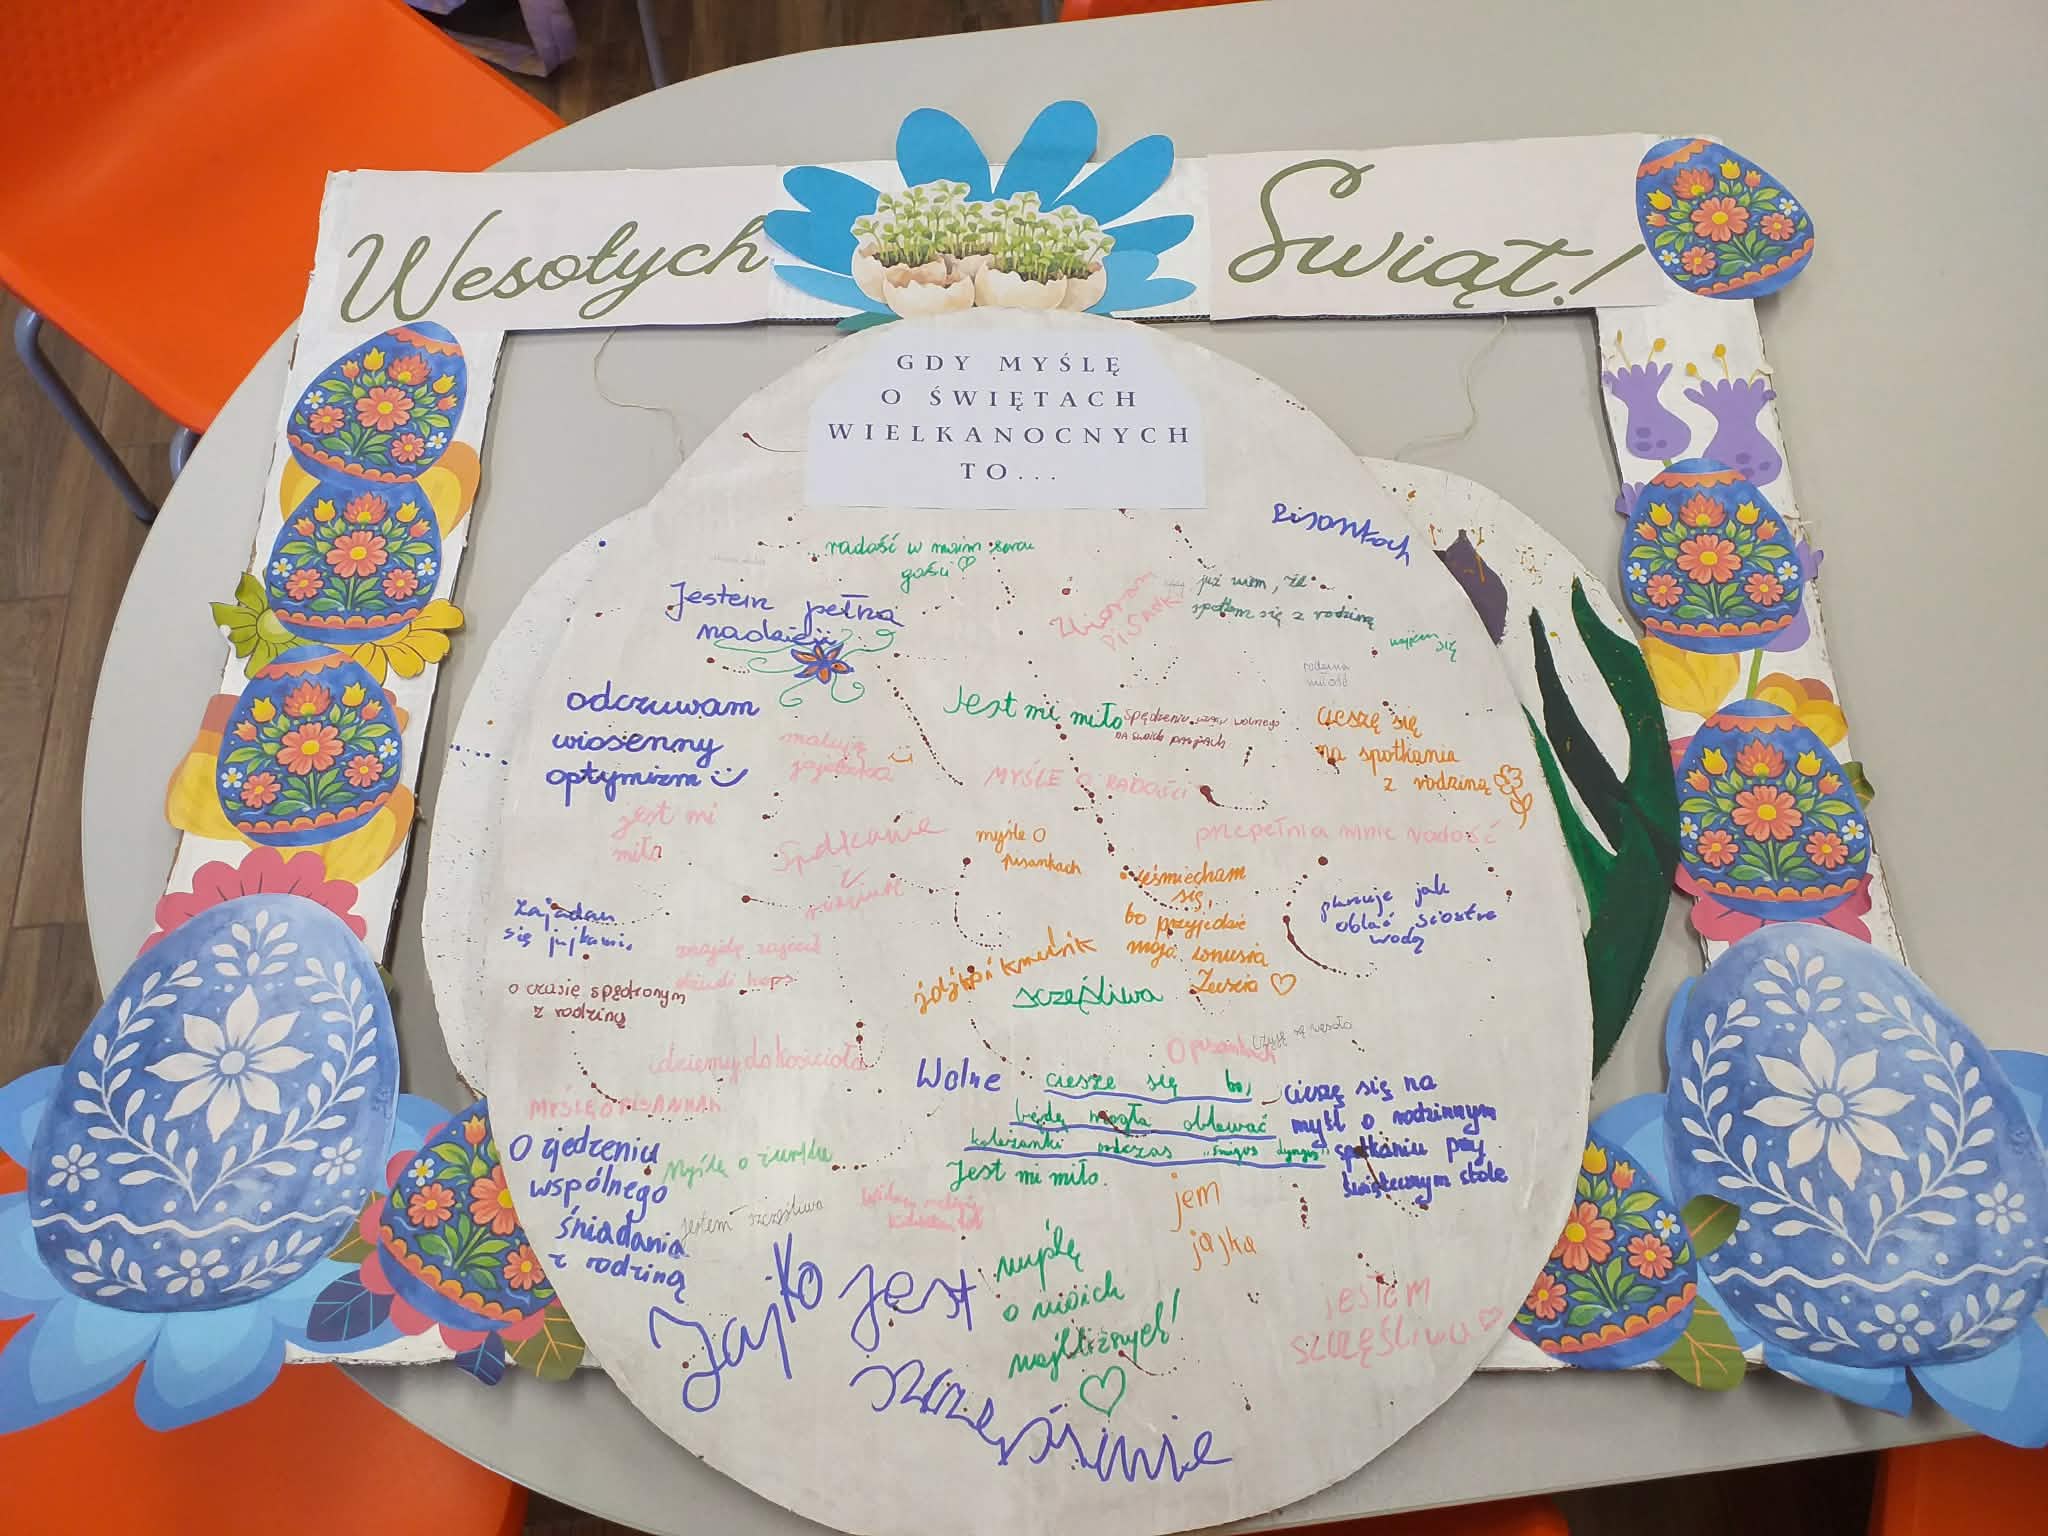 Wesołych Świąt!
GDY MYŚLĘ
O ŚWIĘTACH
WIELKANOCNYCH
TO...
Pisankach
radość w moim sercu
gości
Jestem pełna
nadzieji
Zbieram
już wiem, że
spotkam się z rodziną
rodzinna
miłość
odczuwam
wiosenny
optymizm
maluję
jajeczka
Jest mi miło
spędzeniu czasu wolnego
na swoich pasjach
cieszę się
na spotkania
z rodziną
MYŚLĘ O RADOŚCI
jest mi
miło
Spotkanie
z
myśle o
pisankach
przepełnia mnie radość
uśmiecham
się,
bo przyjedzie
moja
Zuzia
planuje jak
oblać siostre
wodą
Zajadam
się jajkami
o czasię spędzonym
z rodziną
szczęśliwa
idziemy do kościoła
O pisankach
Czuję się wesoło
MYŚLĘ O PISANKAH
Wolne
ciesze się bo,
będę mogła oblewać
koleżanki podczas "śmigus dyngus"
Jest mi miło.
cieszę się na
myśl o rodzinnym
spotkaniu przy
świątecznym stole
O zjedzeniu
wspólnego
śniadania
z rodziną
Myślę o żurku
jestem szczęśliwa
jem
jajka
Jajko jest
myślę
o moich
najbliższych!
jestem
szczęśliwa